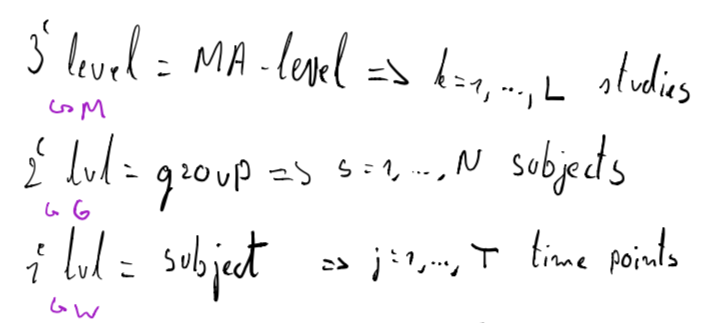 3ᵉ level = MA-level => k=1, ..., L studies
↳ M
2ᵉ lvl = group => s=1, ..., N subjects
↳ G
1ᵉ lvl = subject => j=1, ..., T time points
↳ W